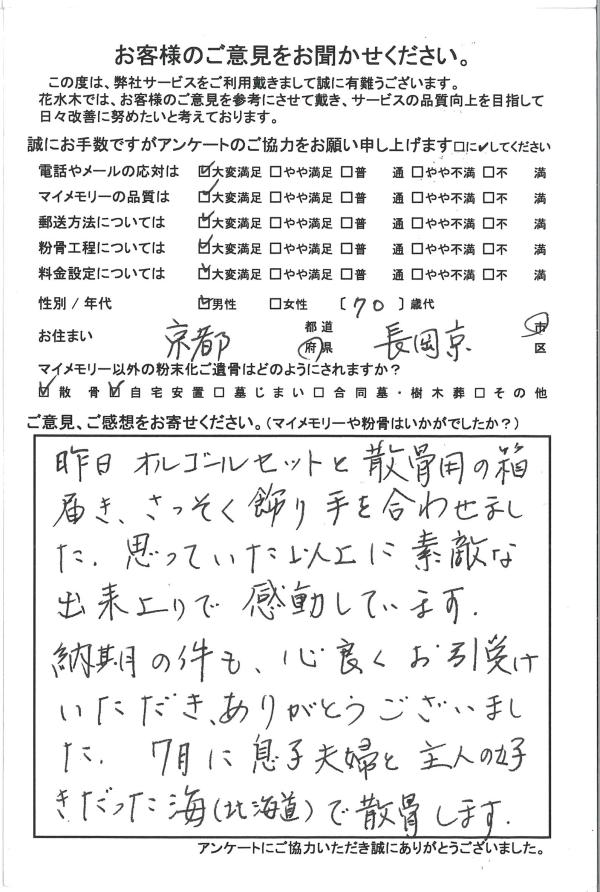 お客様のご意見をお聞かせください。
この度は、弊社サービスをご利用戴きまして誠に有難うございます。
花水木では、お客様のご意見を参考にさせて戴き、サービスの品質向上を目指して
日々改善に努めたいと考えております。
誠にお手数ですがアンケートのご協力をお願い申し上げます□に✓してください
電話やメールの応対は ☑大変満足 □やや満足 □普 通 □やや不満 □不 満
マイメモリーの品質は ☑大変満足 □やや満足 □普 通 □やや不満 □不 満
郵送方法については ☑大変満足 □やや満足 □普 通 □やや不満 □不 満
粉骨工程については ☑大変満足 □やや満足 □普 通 □やや不満 □不 満
料金設定については ☑大変満足 □やや満足 □普 通 □やや不満 □不 満
性別 / 年代 ☑男性 □女性 〔 70 〕歳代
お住まい 京都 都道府県 長岡京 市区
マイメモリー以外の粉末化ご遺骨はどのようにされますか？
☑散 骨 ☑自宅安置 □墓じまい □合同墓・樹木葬 □その他
ご意見、ご感想をお寄せください。(マイメモリーや粉骨はいかがでしたか？)
昨日 オルゴールセットと 散骨用の箱
届き、さっそく飾り 手を合わせまし
た. 思っていた以上に 素敵な
出来上りで 感動しています.
納期の件も、心良く お引受け
いただき、ありがとうございまし
た. 7月に 息子夫婦と 主人の好
きだった海(北海道)で散骨します.
アンケートにご協力いただき誠にありがとうございました。